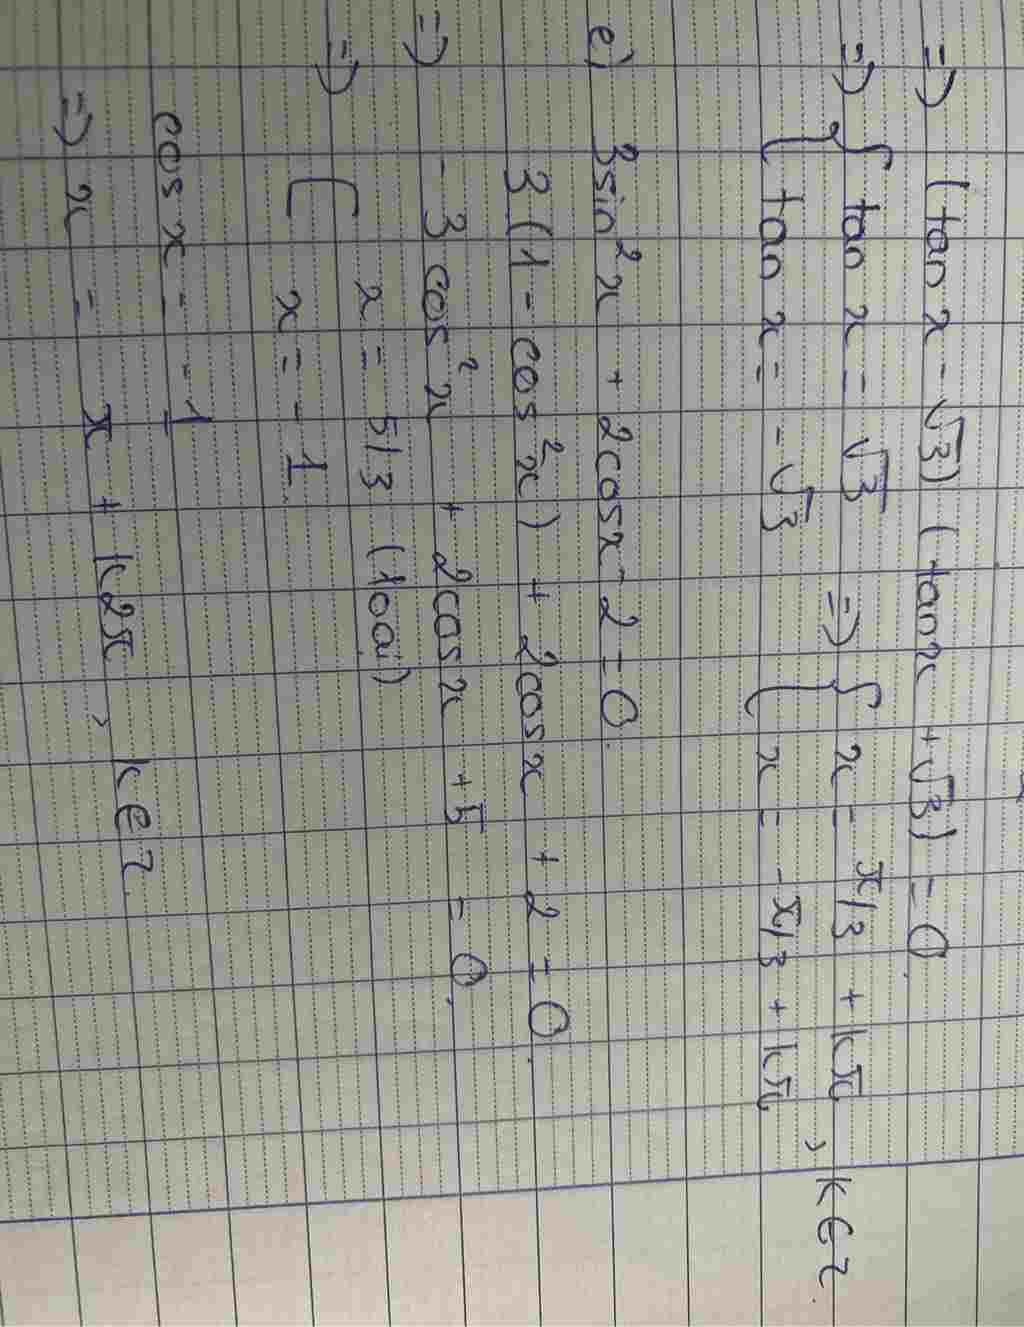 => (tan x - √3) (tan x + √3) = 0.
=> { tan x = √3 => { x = π/3 + kπ
{ tan x = - √3 { x = - π/3 + kπ , k ∈ Z.
e) 3sin²x + 2cosx - 2 = 0.
3 (1 - cos²x) + 2cosx + 2 = 0.
=> - 3 cos²x + 2cosx + 5 = 0.
=> [ x = 5/3 (loại)
x = - 1
cos x = - 1
=> x = π + k2π , k ∈ Z.